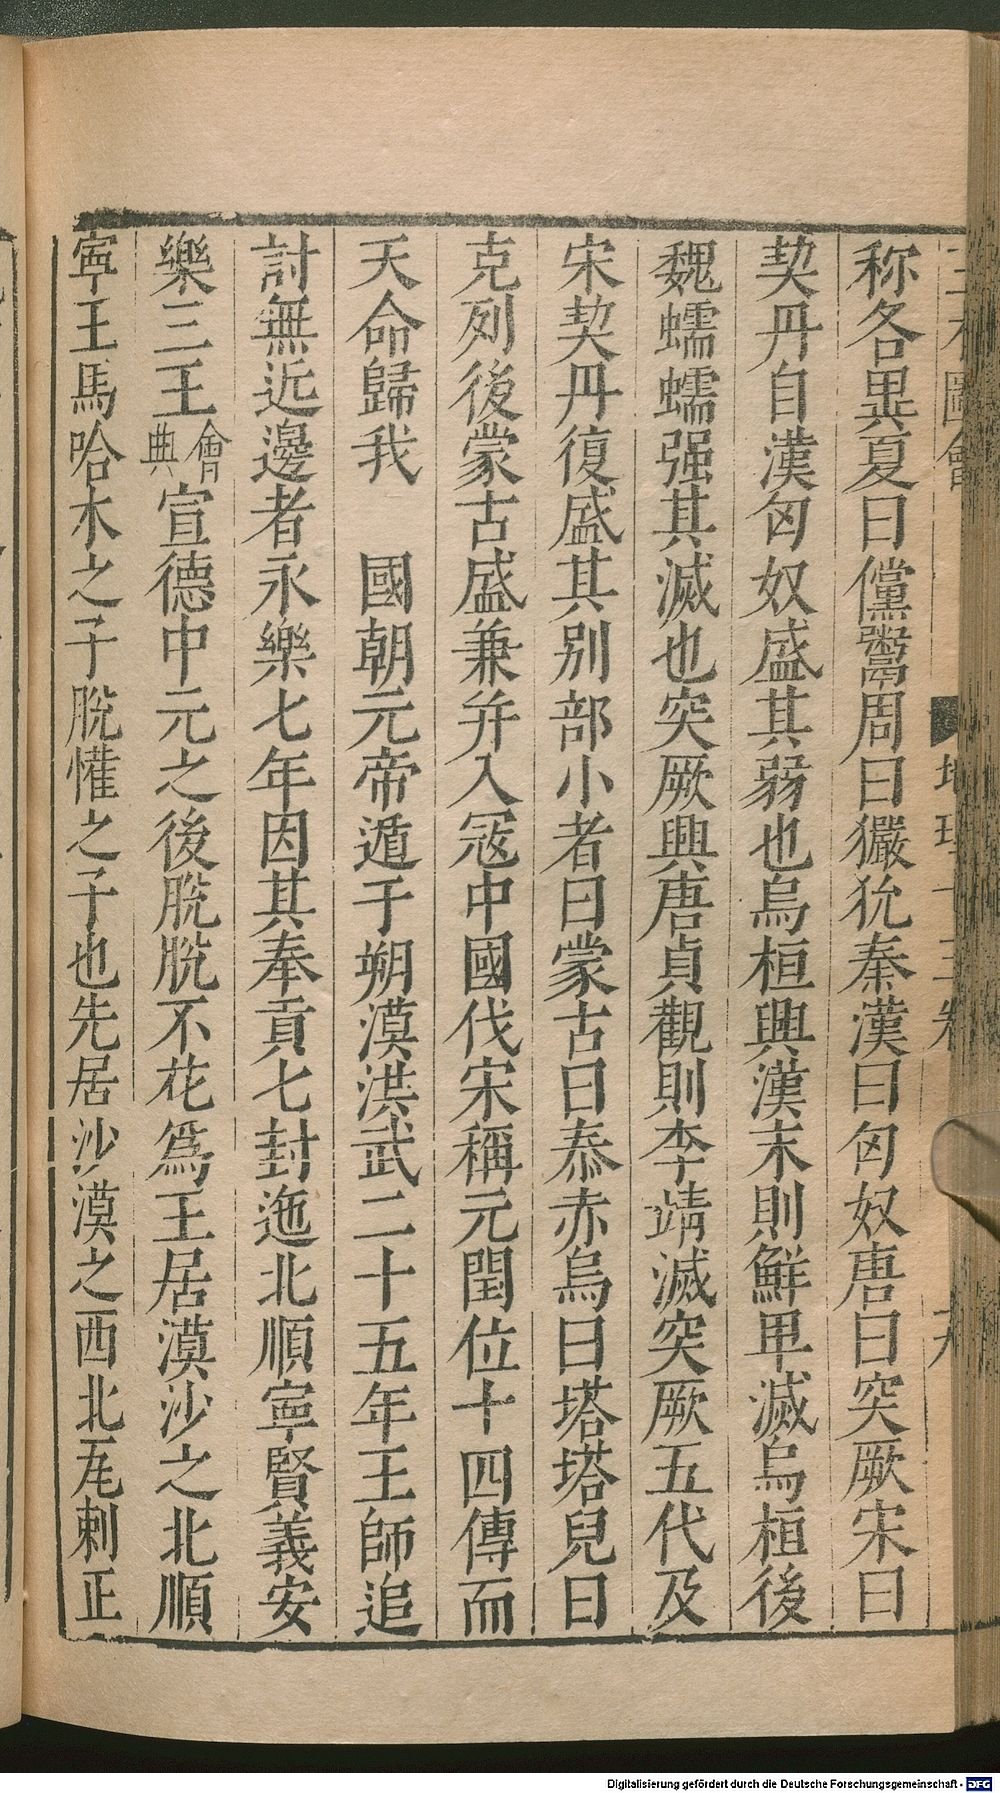 三才圖會 地理十三卷
称各異夏曰儻鬻周曰玁狁秦漢曰匈奴唐曰突厥宋曰
契丹自漢匈奴盛其弱也烏桓興漢末則鮮卑滅烏桓後
魏蠕蠕强其滅也突厥興唐貞觀則李靖滅突厥五代及
宋契丹復盛其别部小者曰蒙古曰泰赤烏曰塔塔兒曰
克列後蒙古盛兼并入冦中國代宋稱元閏位十四傳而
天命歸我 國朝元帝遁于朔漠洪武二十五年王師追
討無近邊者永樂七年因其奉貢七封迤北順寧賢義安
樂三王會典宣德中元之後脱脱不花爲王居漠沙之北順
寧王馬哈木之子脱懽之子也先居沙漠之西北瓦剌正
Digitalisierung gefördert durch die Deutsche Forschungsgemeinschaft - DFG